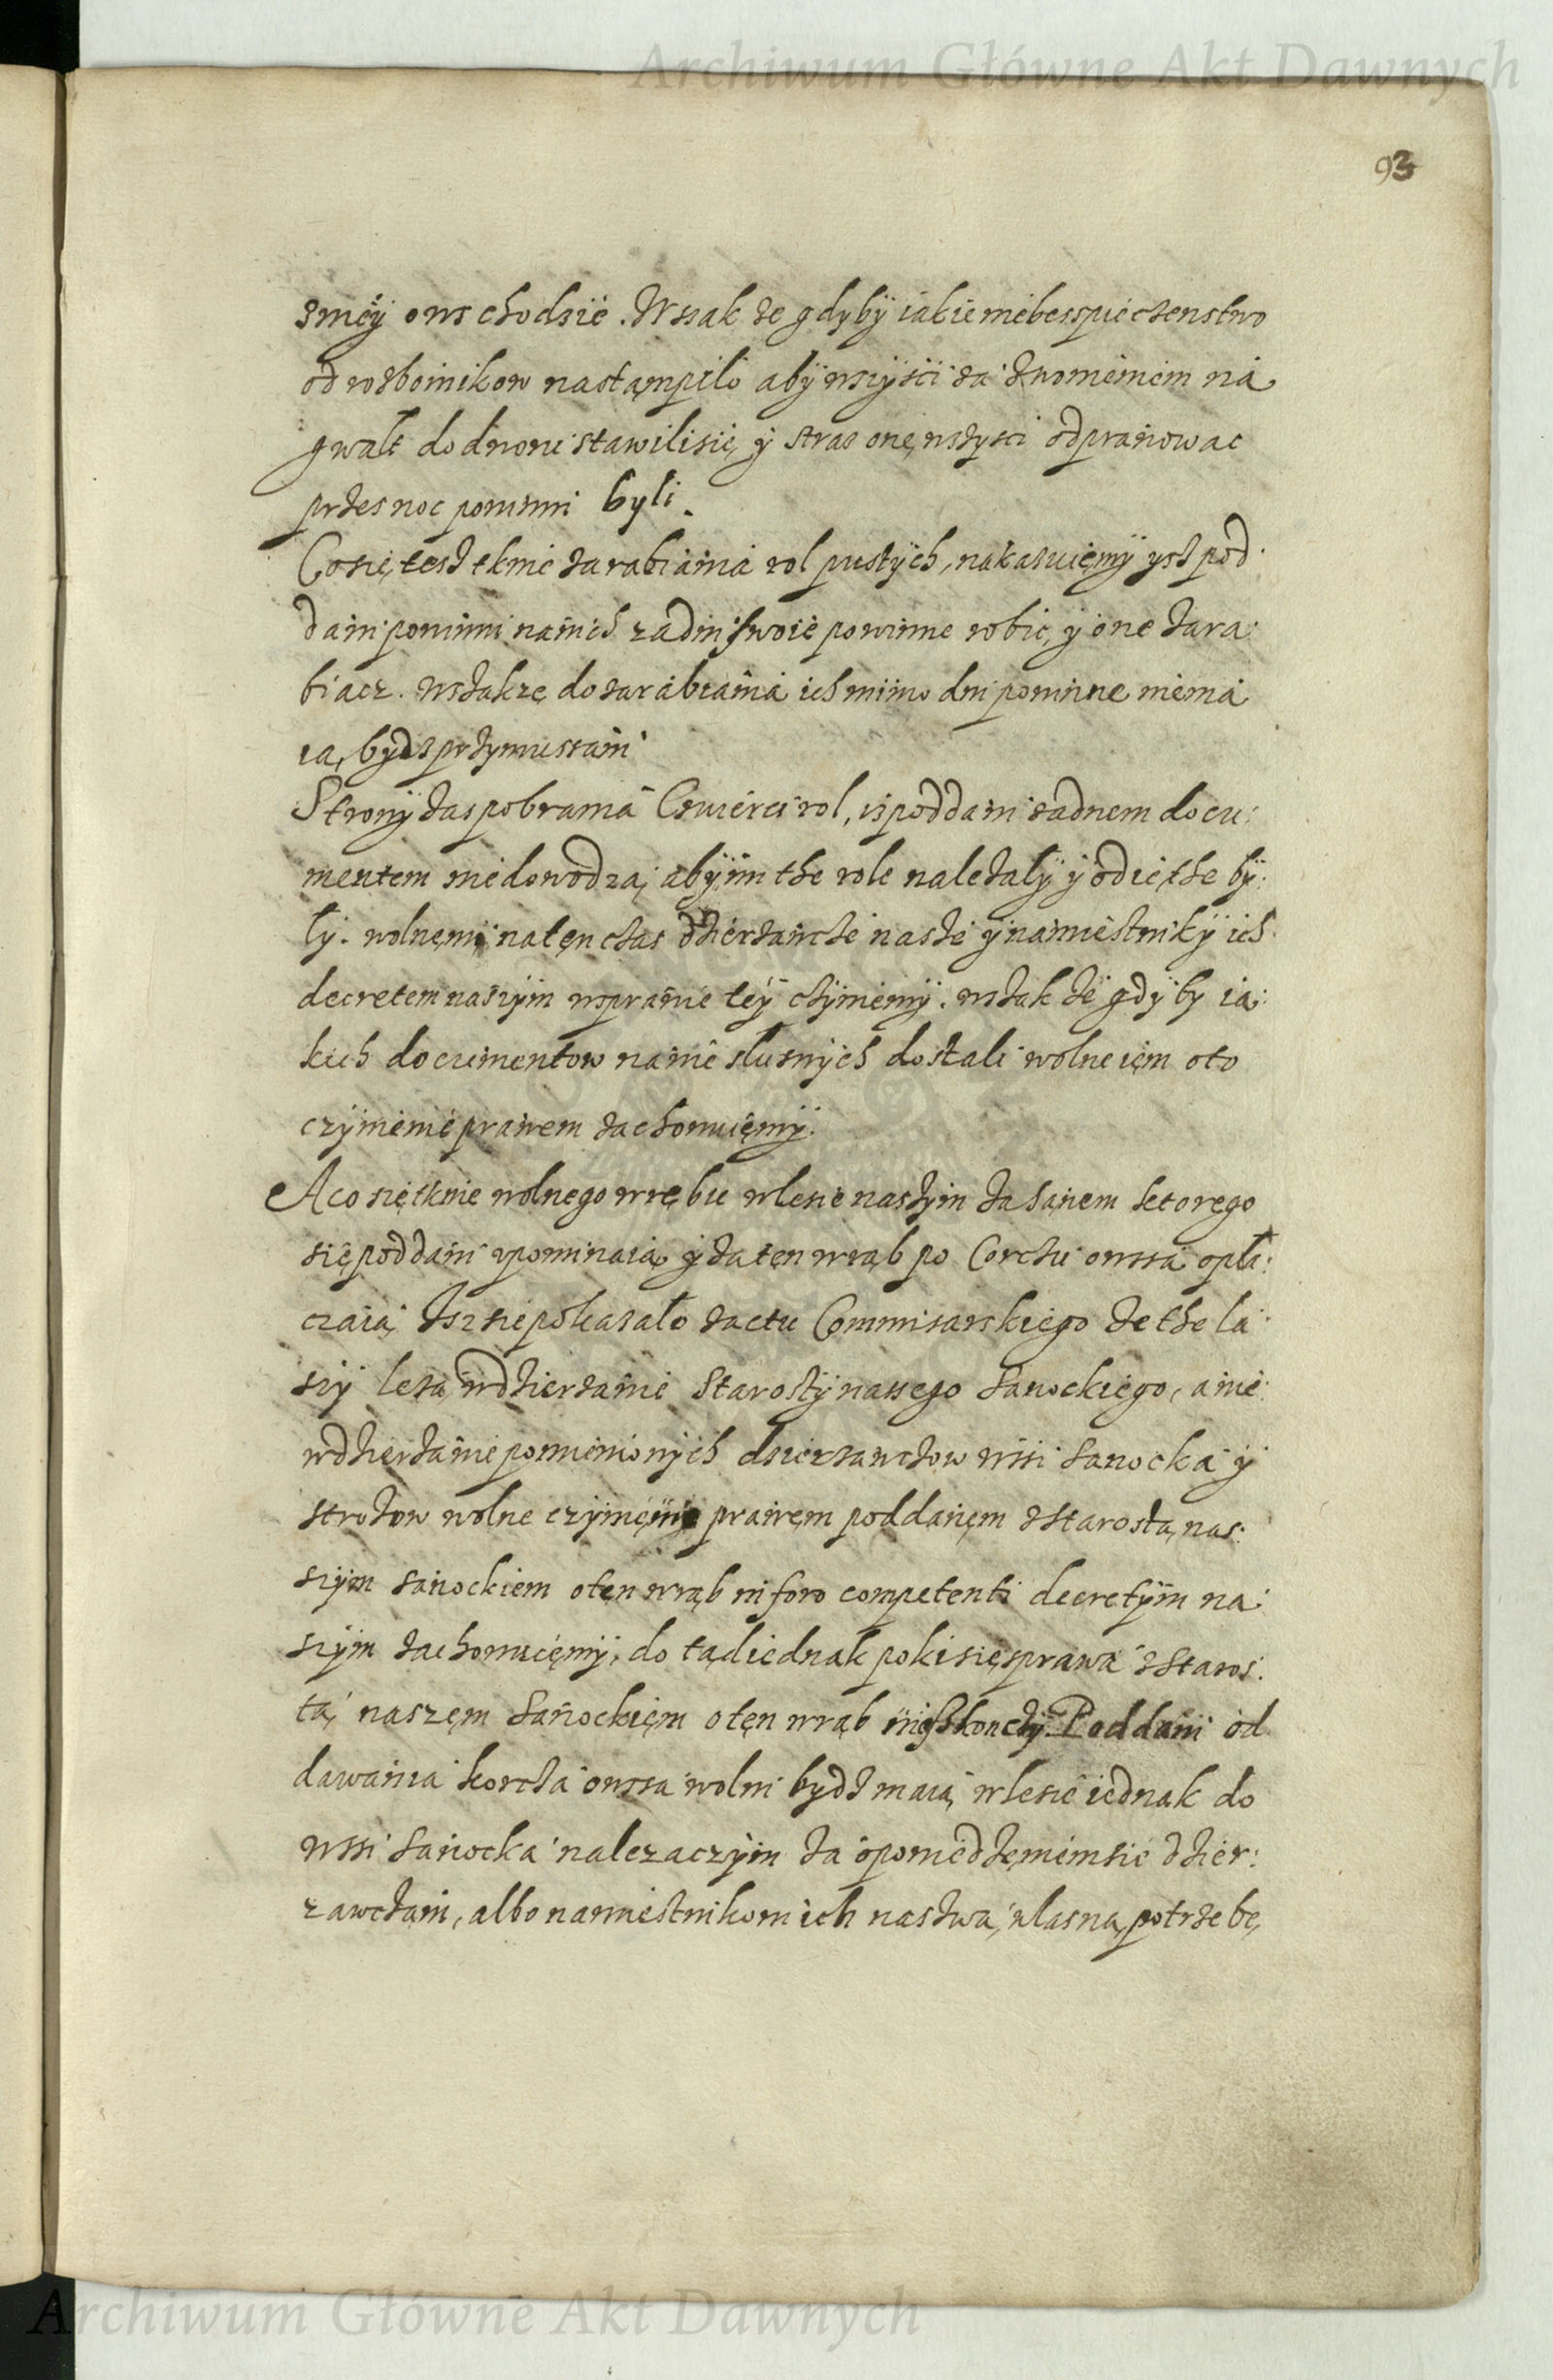 Archiwum Główne Akt Dawnych
93
zmęy owschodzie. Wssak ze gdyby iakie niebesspieczenstwo
od rozboinikow nastąmpilo aby wszyscii za dzwonieniem na
gwałt do dworu stawilisię, y straz onę wszyscy odprawowac
przes noc powinni byli.
Cosię tesz tknie zarabiania rol pustych, nakazuięmy ysz pod
dani powinni na nich zadni swoie powinne robic, y one zara:
biacz. wszakze do zarabiania ich mimo dni powinne niema
ią, bydz przymussani
Strony zas pobrania Czwierci rol, isz poddani zadnem docu:
mentem niedowodzą, aby im the role nalezaly y odięthe by:
ly. wolnęmi na tęn czas dzierzawcze nasze y namiestniky ich
decretem naszym wsprawie tey czyniemy. wszak ze gdyby ia:
kich documentow na nie slusnych dostali wolne iem oto
czynienie prawem zachowuięmy.
A co się tknie wolnego wrębu wlesie naszym za Sanem ktorego
się poddani upominaią, y za ten wrąb po Korczu owssa opła:
czaią, Isz się pokazało zactu Commisarskiego ze the la
sy leżą wdzierzawie Starosty nassego Sanockiego, a nie:
wdzierzawie pomienionych dzierzawczow wssi Sanocka y
Strozow wolne czynięnie prawęm poddanęm z Starostą nas:
szym Sanockiem otęn wrąb in foro competenti decretym na
szym zachowuięmy, do tąd iednak poki się sprawa z Staros:
tą, naszęm Sanockięm o tęn wrąb nieskonczy. Poddani od
dawania korcza owssa wolni bydz maią, wlesie iednak do
wssi Sanocka nalezaczym za opowiedzeniem sie dzier:
zawczam, albo namiestnikom ich naszwą, własną potrzebę,
Archiwum Główne Akt Dawnych